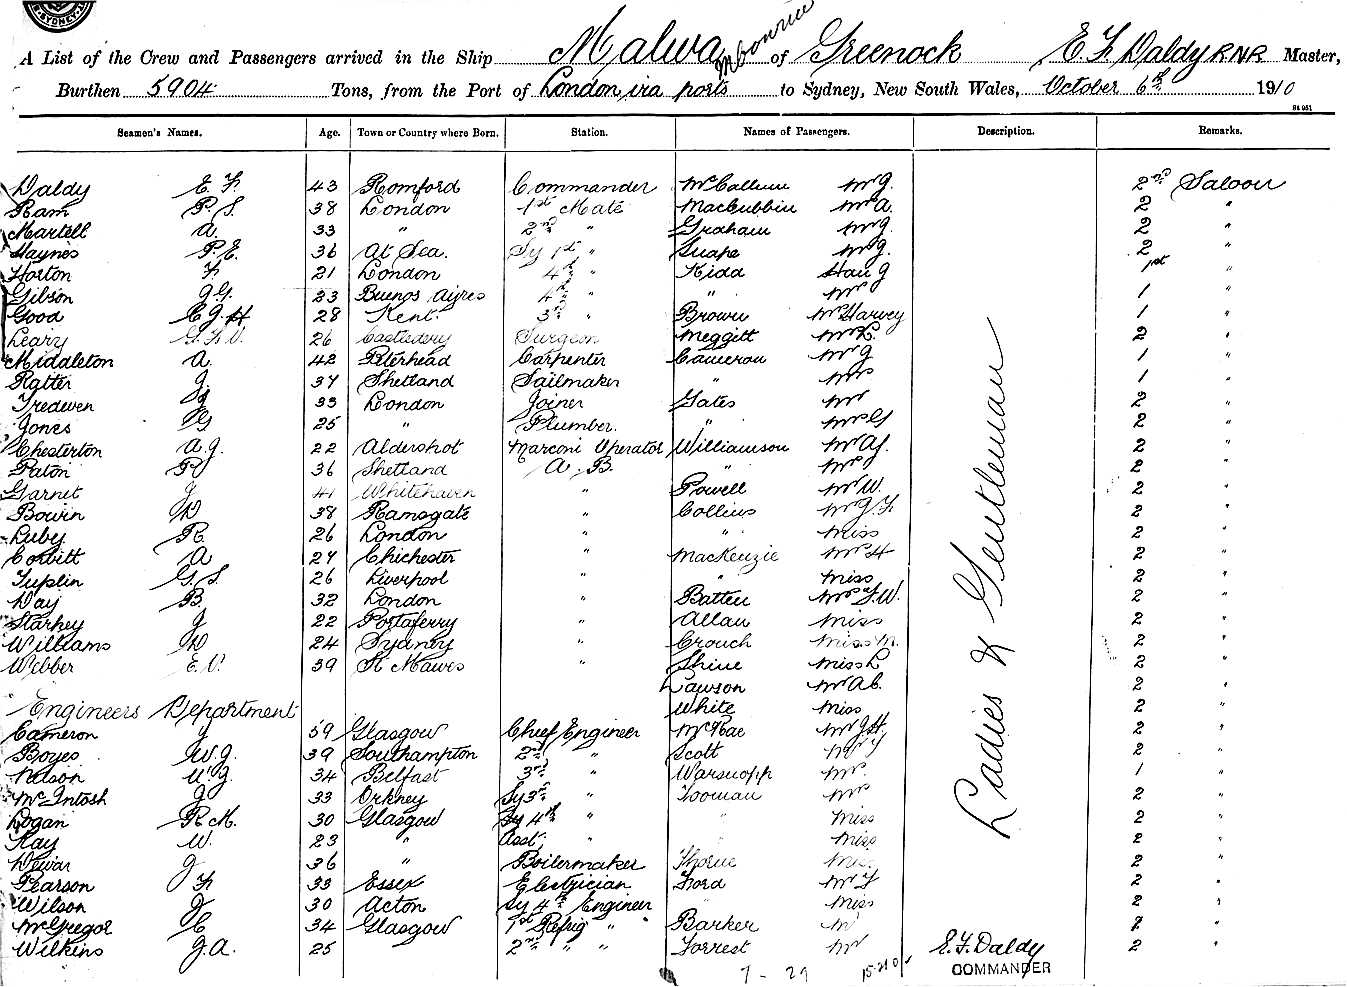 SYDNEY
A List of the Crew and Passengers arrived in the Ship Malwa of Greenock E. F. Daldy R.N.R. Master,
Burthen 5904 Tons, from the Port of London via ports to Sydney, New South Wales, October 6th 1910
Seamen's Names. Age. Town or Country where Born. Station. Names of Passengers. Description. Remarks.
Daldy E. F. 43 Romford Commander McCallum Mr J. 2nd Saloon
Ram P. S. 38 London 1st Mate MacCubbin Mr A. 2 "
Martell A. 33 " 2nd " Graham Mr J. 2 "
Haynes P. E. 36 At Sea. Sy 1st " Snape Mr J. 2 "
Horton F. 21 London 4th " Kidd 1st "
Gibson J. G. 23 Buenos Ayres 4th " " Mrs 1 "
Good E J H 28 Kent. 3rd " Brown Mr Harvey 1 "
Leary 26 Surgeon Meggitt Mr L. 2 "
Middleton A. 42 Peterhead Carpenter Cameron Mr J 1 "
Ratter J. 37 Shetland Sailmaker " Mrs 1 "
Tredwen J 33 London Joiner Gates Mr 2 "
Jones G 25 " Plumber. " Mrs G 2 "
Chesterton A. J. 22 Aldershot Marconi Operator Williamson Mr A J. 2 "
Paton P 36 Shetland A. B. " Mrs 2 "
Garnet J 41 Whitehaven " Powell Mr W. 2 "
Bowin D 38 Ramsgate " Collins Mr J. F. 2 "
Luby R 26 London " " Miss 2 "
Corbitt A 27 Chichester " MacKenzie Mrs H 2 "
Tuplin G. S. 26 Liverpool " " Miss 2 "
Day B. 32 London " Batten Mrs F. W. 2 "
Starkey J 22 Portaferry " Allan Miss 2 "
Williams D 24 Sydney " Crouch Miss M. 2 "
Webber E. V. 39 St Mawes " Shine Miss L 2 "
Lawson Mr A C. 2 "
Engineers Department White Miss 2 "
Cameron J 59 Glasgow Chief Engineer McRae Mr J H. 2 "
Boyes W. J. 39 Southampton 2nd " Scott 2 "
Nelson W. J. 34 Belfast 3rd " Warsnopp Mr. 1 "
McIntosh J 33 Orkney Sy 3rd " Tooman Mrs 2 "
Logan R M. 30 Glasgow Sy 4th " " Miss 2 "
Kay W. 23 " Asst, " " Miss 2 "
Dewar J 36 " Boilermaker Thorne Miss 2 "
Pearson F 33 Essex Electrician Ford Mr F 2 "
Wilson J 30 Acton Sy 4th Engineer " Miss 2 "
McGregor C 34 Glasgow 1st Refrig " " Barker M 2 "
Wilkins J. A. 25 2nd " " Forrest Mr 2 "
Ladies & Gentleman
E. F. Daldy
COMMANDER
7 - 29